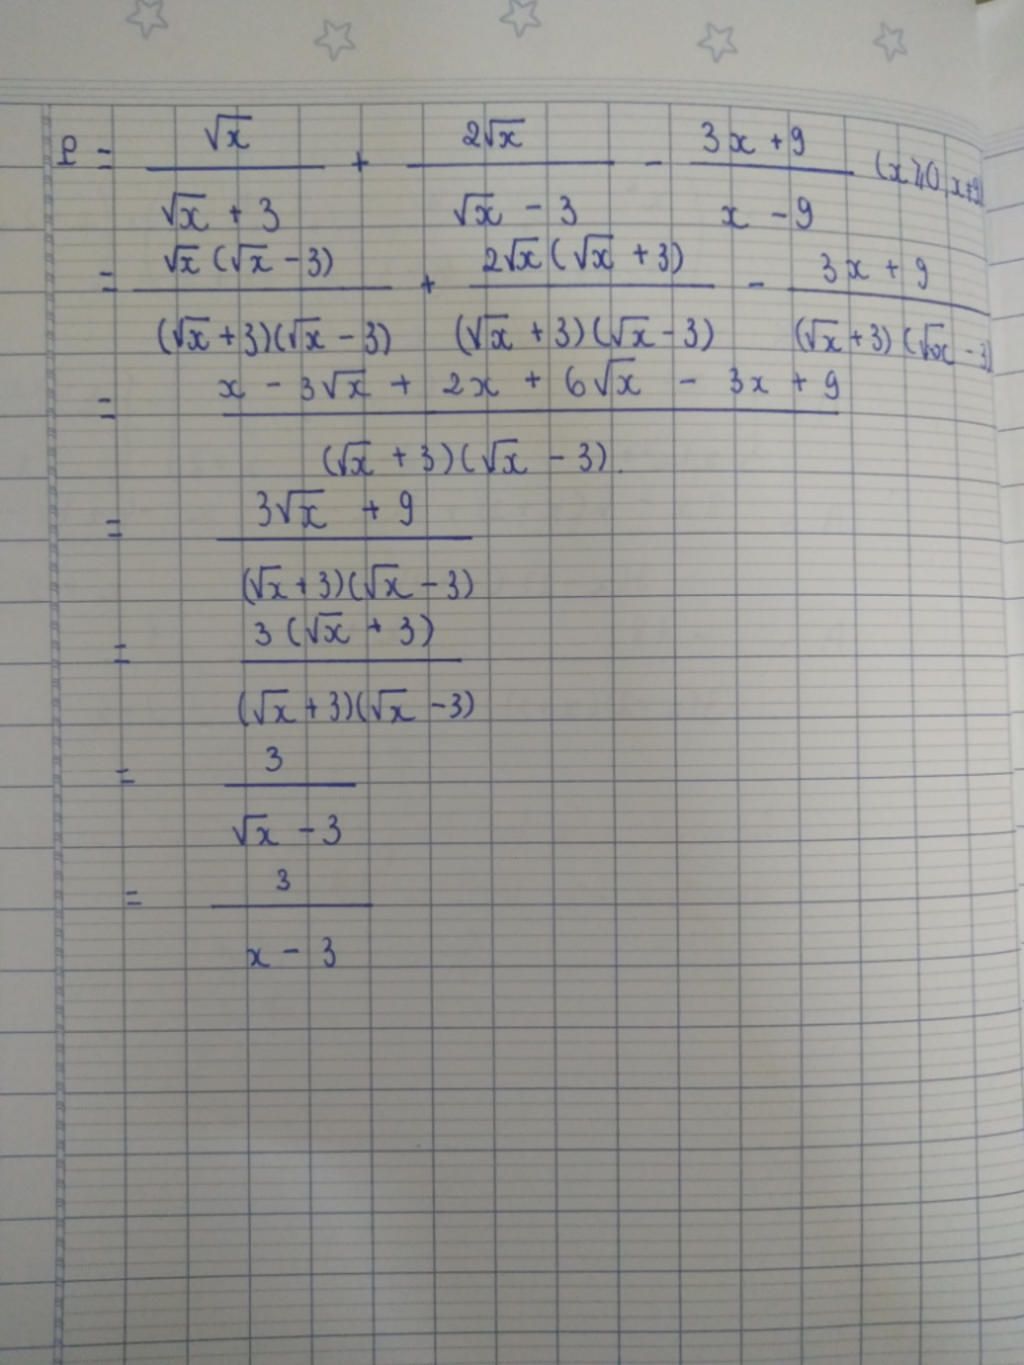 P = √x / (√x + 3) + 2√x / (√x - 3) - (3x + 9) / (x - 9) (x ≥ 0, x ≠ 9)
= √x(√x - 3) / (√x + 3)(√x - 3) + 2√x(√x + 3) / (√x + 3)(√x - 3) - (3x + 9) / (√x + 3)(√x - 3)
= (x - 3√x + 2x + 6√x - 3x + 9) / (√x + 3)(√x - 3)
= (3√x + 9) / (√x + 3)(√x - 3)
= 3(√x + 3) / (√x + 3)(√x - 3)
= 3 / (√x - 3)
= 3 / (x - 3)